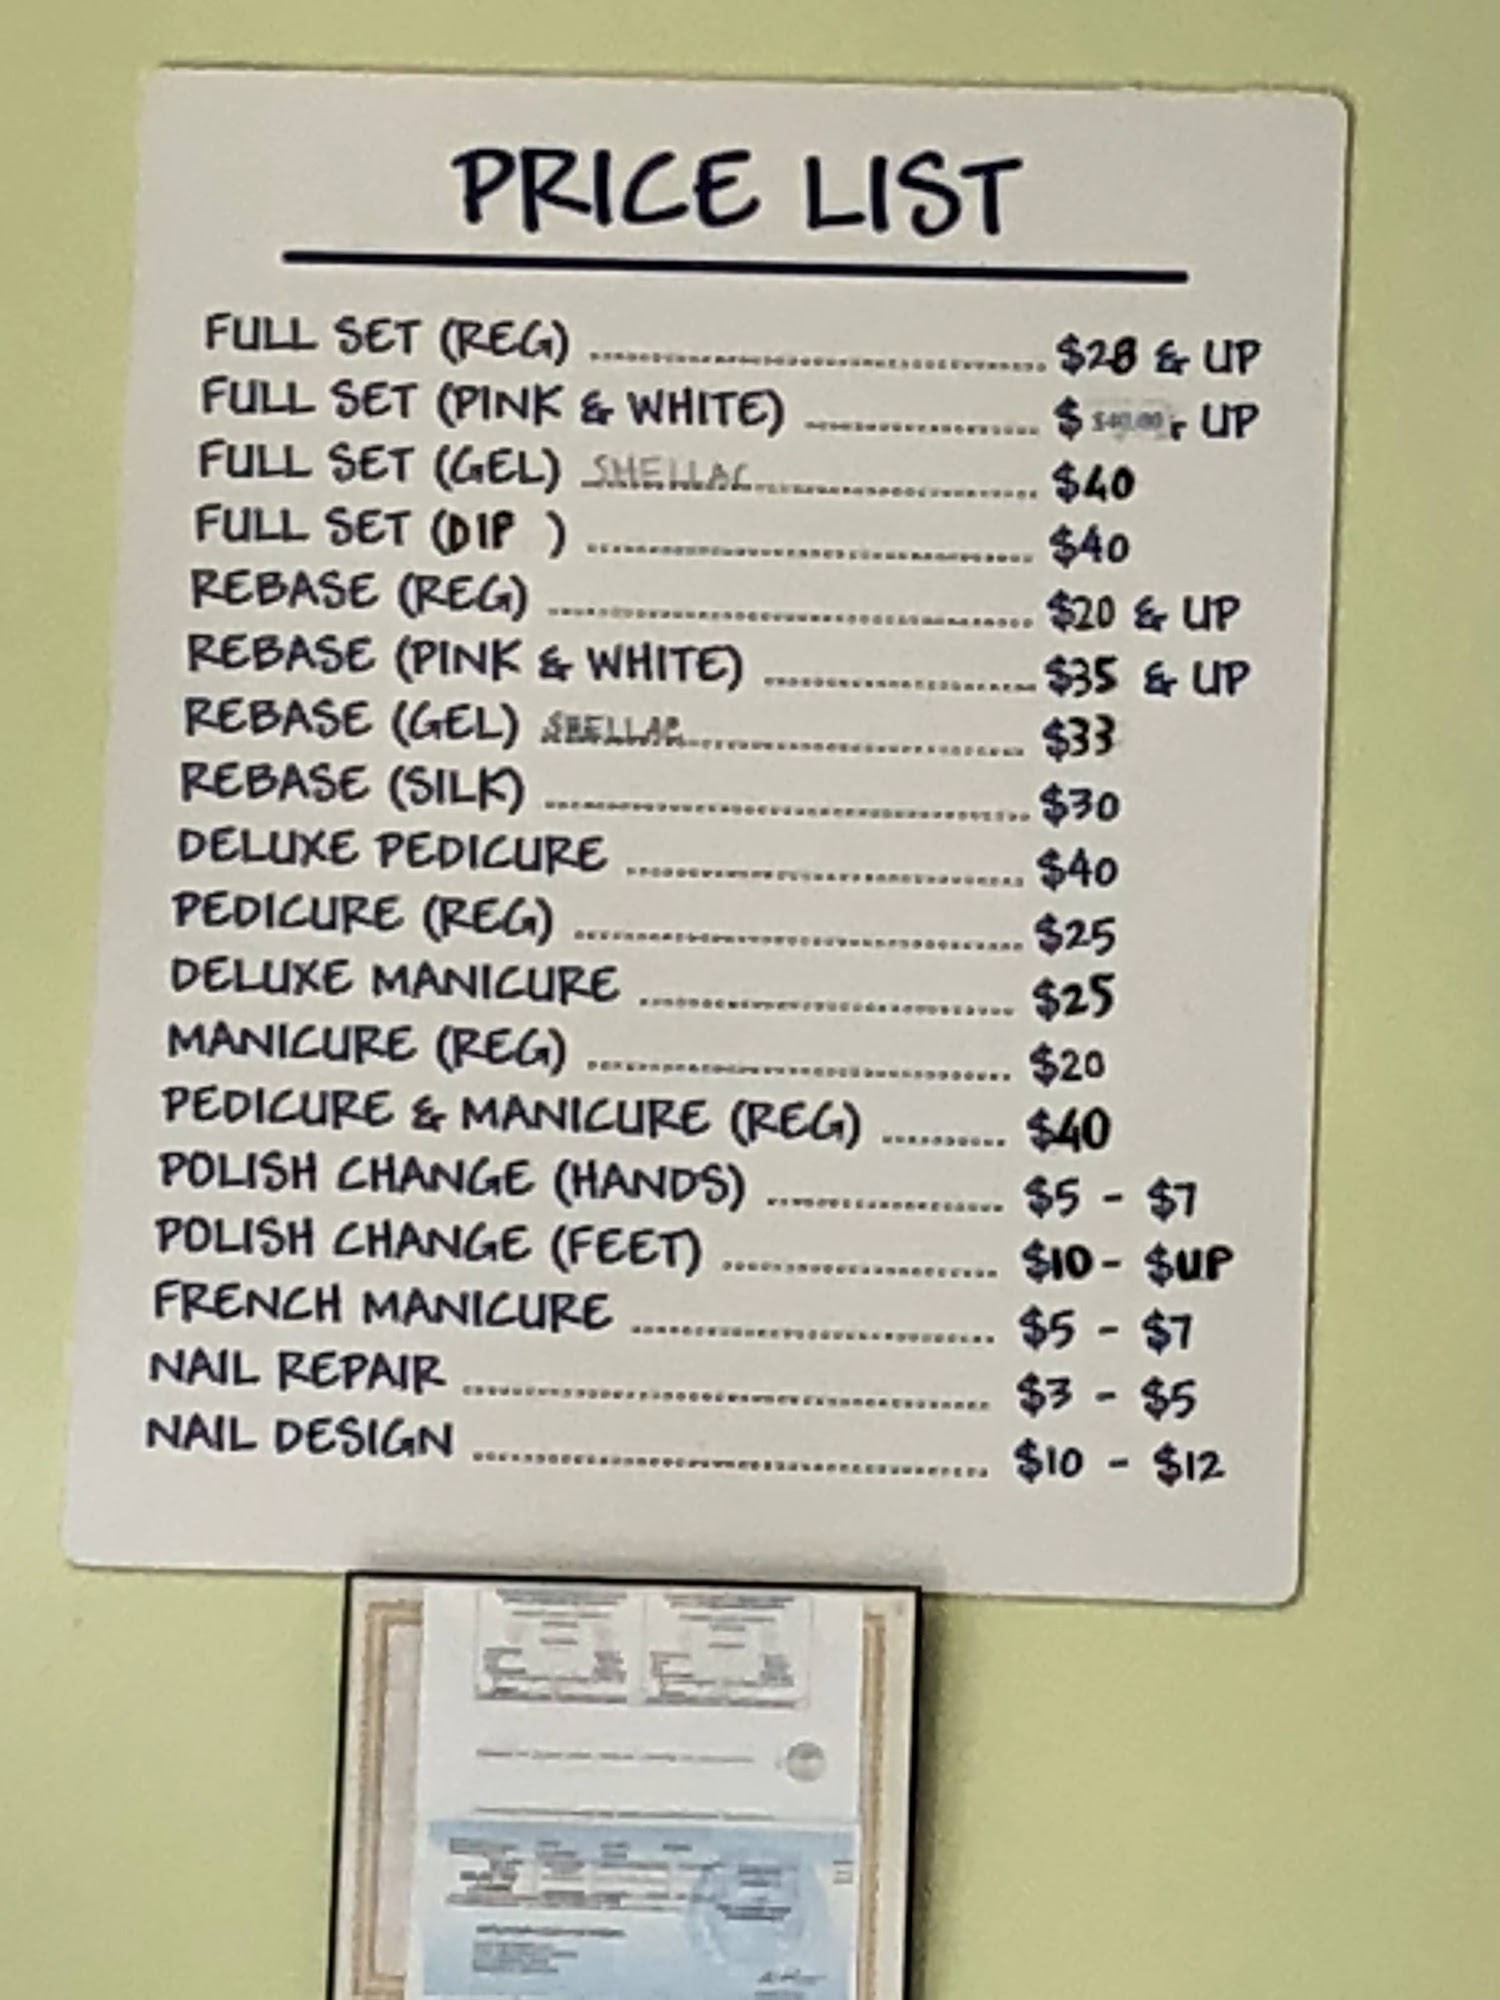 PRICE LIST
FULL SET (REG) ........ $28 & UP
FULL SET (PINK & WHITE) ........ $ $40.00 UP
FULL SET (GEL) SHELLAC ........ $40
FULL SET (DIP ) ........ $40
REBASE (REG) ........ $20 & UP
REBASE (PINK & WHITE) ........ $35 & UP
REBASE (GEL) SHELLAC ........ $33
REBASE (SILK) ........ $30
DELUXE PEDICURE ........ $40
PEDICURE (REG) ........ $25
DELUXE MANICURE ........ $25
MANICURE (REG) ........ $20
PEDICURE & MANICURE (REG) ........ $40
POLISH CHANGE (HANDS) ........ $5 - $7
POLISH CHANGE (FEET) ........ $10 - $UP
FRENCH MANICURE ........ $5 - $7
NAIL REPAIR ........ $3 - $5
NAIL DESIGN ........ $10 - $12